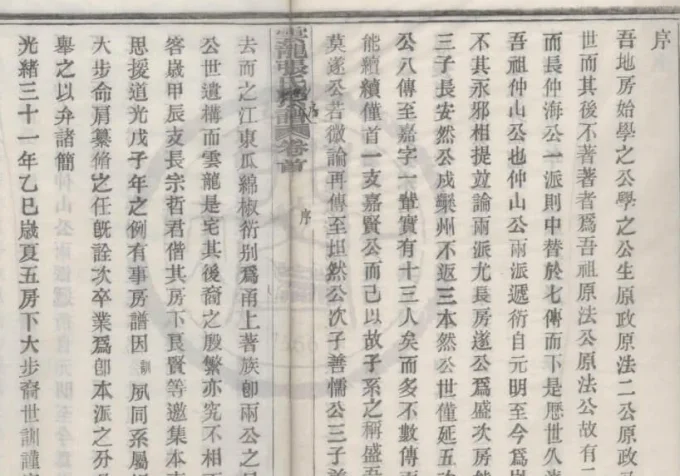 序
吾地房始學之公學之公生原政原法二公原政
世而其後不著著者爲吾祖原法公原法公故有二
而長仲海公一派則中替於七傳而下是歷世久
吾祖仲山公也仲山公兩派遞衍自元明至今爲
不其永邪相提竝論兩派尤長房遂公爲盛次房
三子長安然公戍欒州不返三本然公世僅延五
公八傳至嘉字一輩實有十三人矣而多不數傳
能纘續僅首一支嘉賢公而已以故子系之稱盛
莫遂公若微論再傳至坦然公次子善懦公三子善
雲龍張氏 譜 卷首
序
去而之江東瓜綿椒衍别爲甬上著族卽兩公之
公世遺構而雲龍是宅其後裔之殷繁亦究不相
答歲甲辰支長宗哲君偕其房下良賢等邀集本
思援道光戊子年之例有事房譜因訓夙同系屬
大步命肩纂脩之任旣詮次卒業爲卽本派之
舉之以弁諸簡
光緒三十一年乙巳歲夏五房下大步裔世訓謹